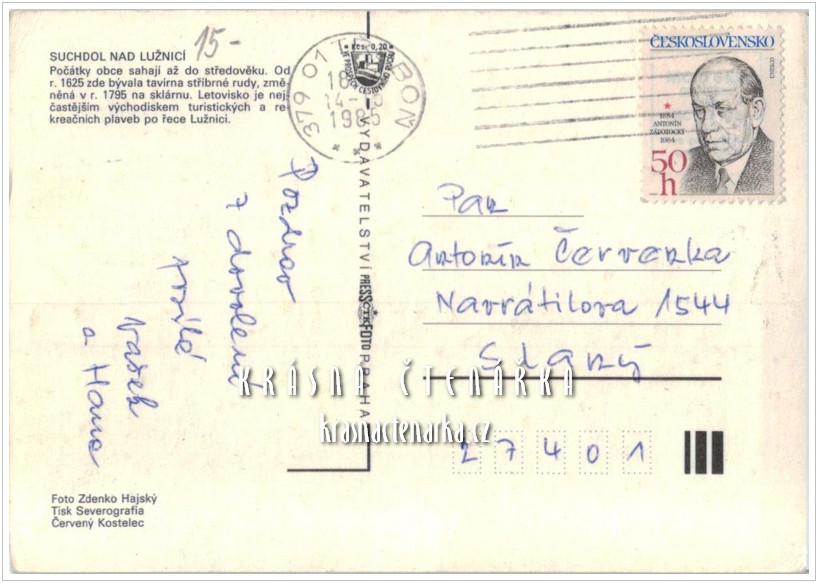 SUCHDOL NAD LUŽNICÍ
15-
Počátky obce sahají až do středověku. Od
r. 1625 zde bývala tavírna stříbrné rudy, změ-
něná v r. 1795 na sklárnu. Letovisko je nej-
častějším východiskem turistických a re-
kreačních plaveb po řece Lužnici.
379 01 TŘEBOŇ
1985
Kčs 0,20
VE PROSPĚCH CESTOVNÍHO RUCHU
ČESKOSLOVENSKO
1884
ANTONÍN
ZÁPOTOCKÝ
1984
50
h
VYDAVATELSTVÍ PRESSFOTO PRAHA
ČTK
Pozdrav
z dovolené
Vašek
a Hana
Pan
Antonín Červenka
Navrátilova 1544
Slaný
27401
KRÁSNÁ ČTENÁŘKA
krasnactenarka.cz
Foto Zdenko Hajský
Tisk Severografia
Červený Kostelec